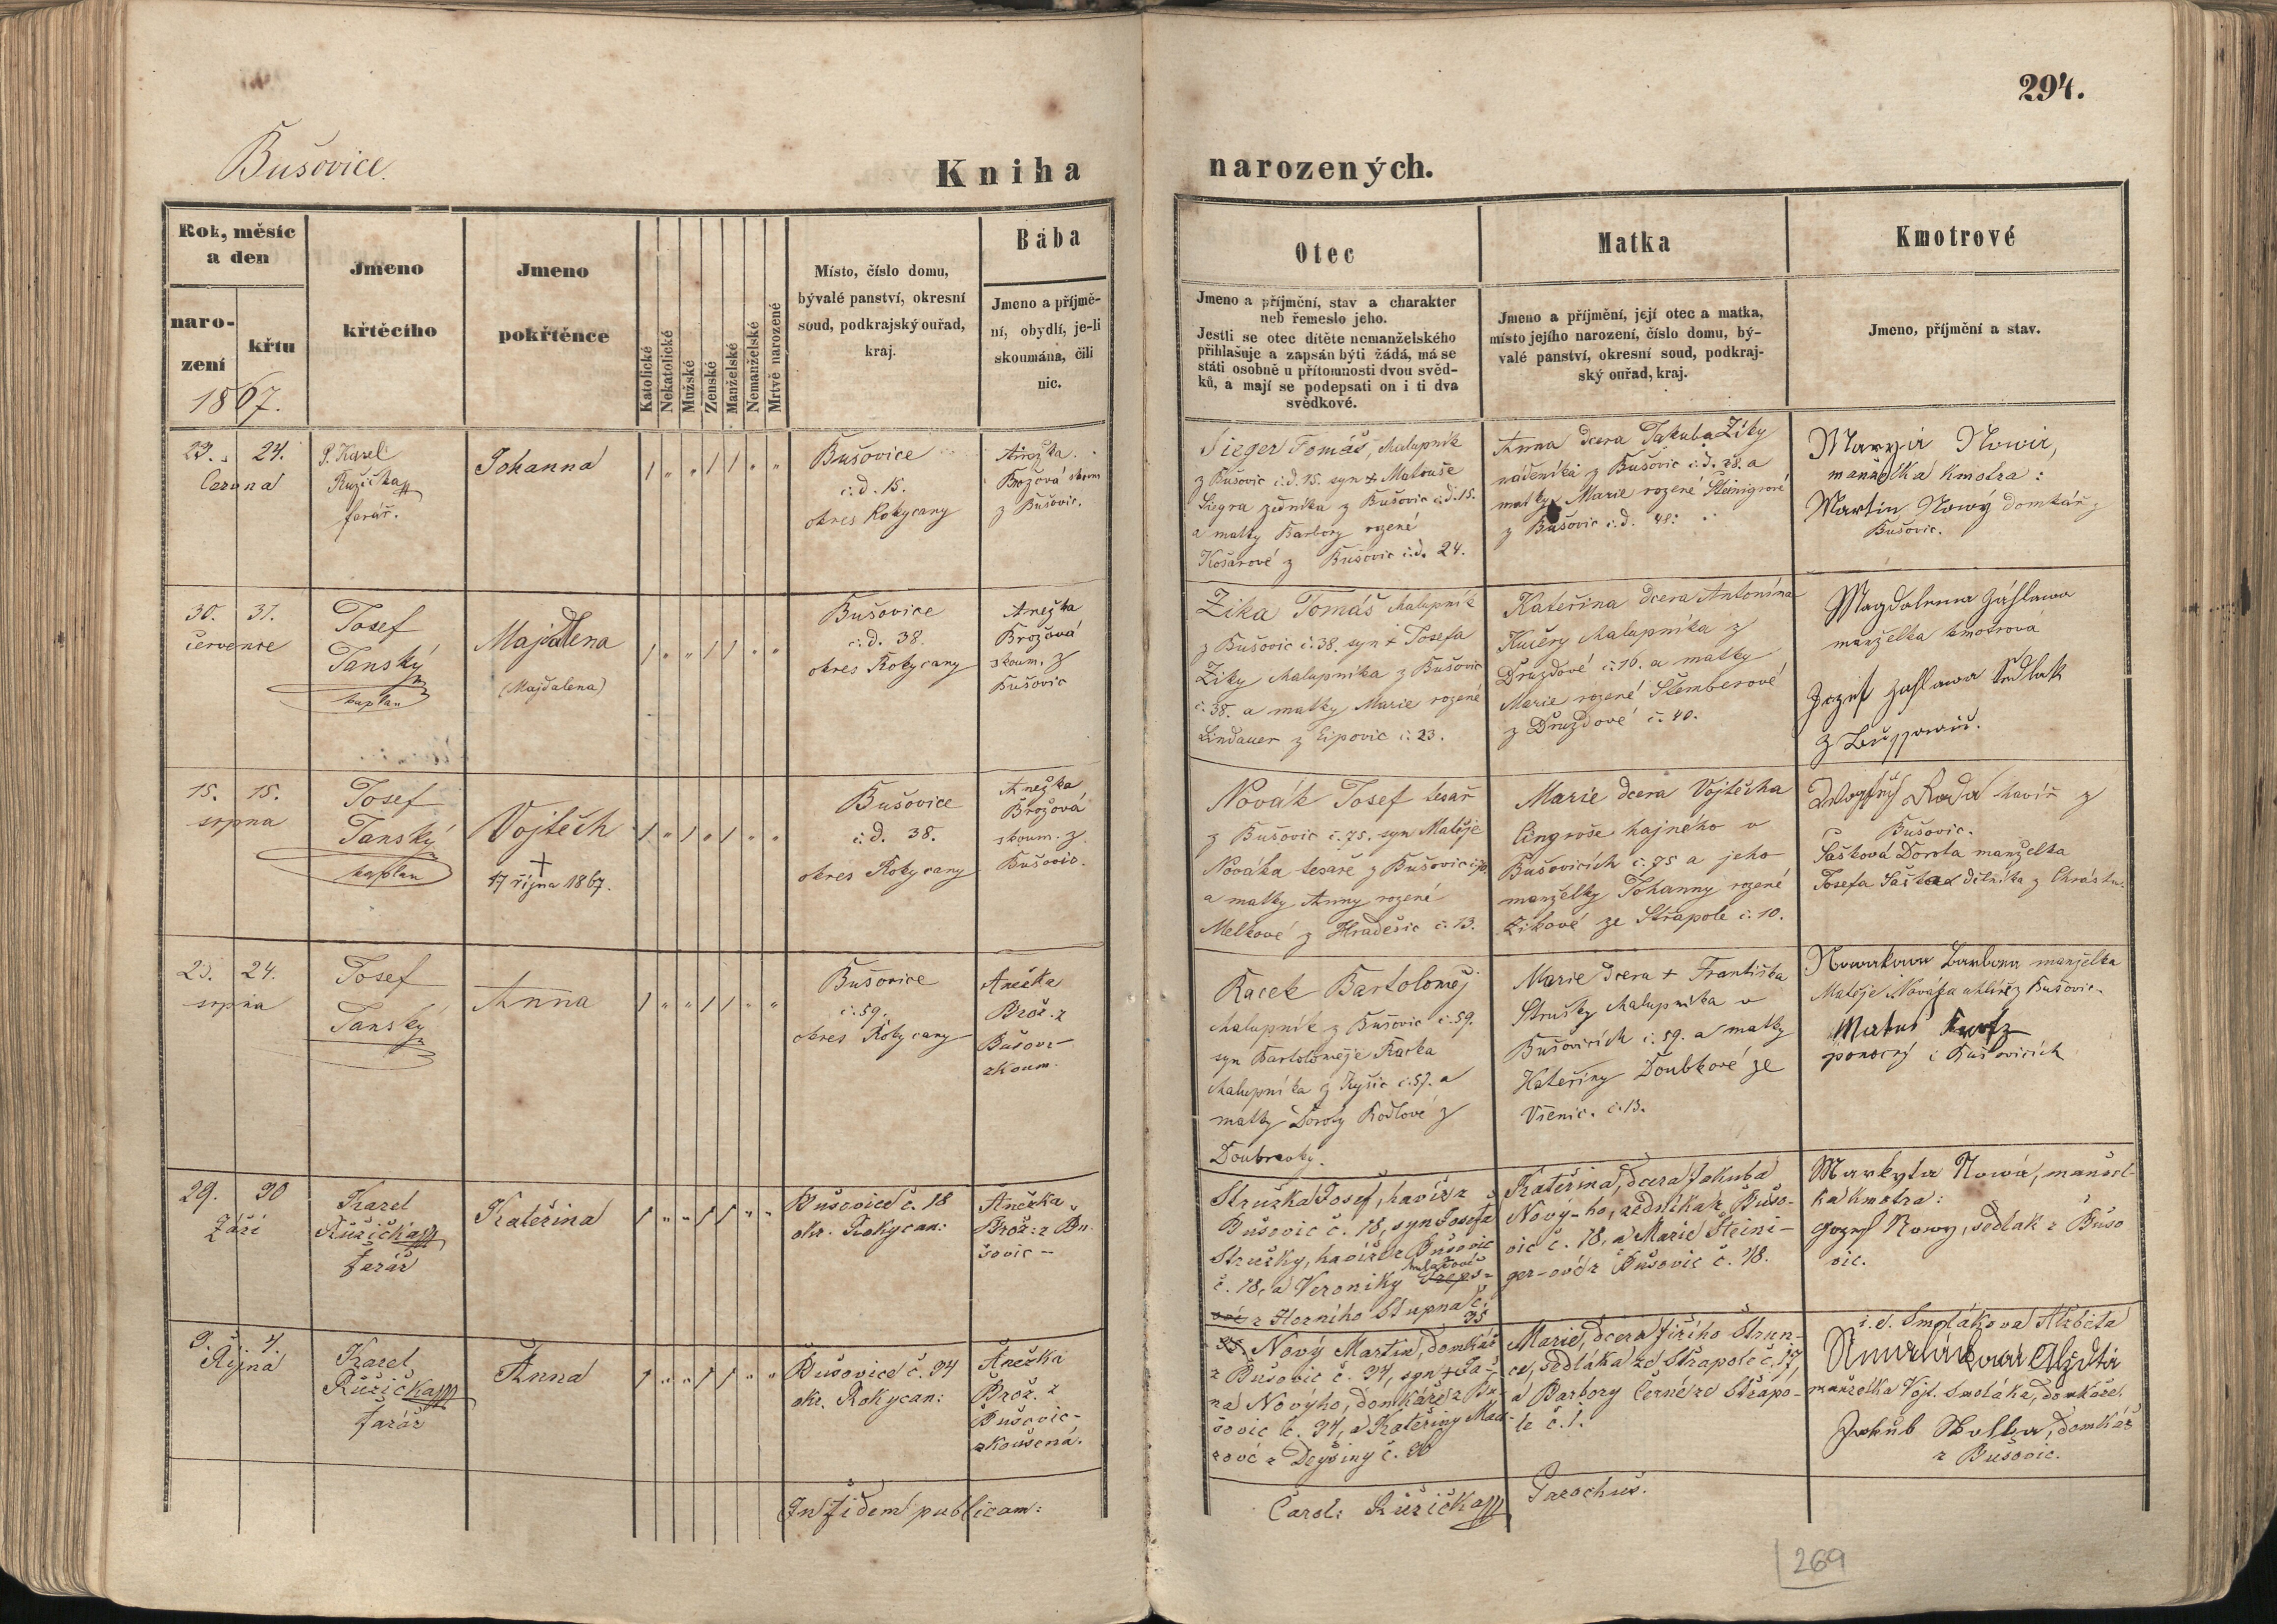 294.
Bušovice.
Kniha narozených.
Rok, měsíc
a den
naro-
zení
křtu
1867.
Jmeno
křtěcího
Jmeno
pokřtěnce
Katolické
Nekatolické
Mužské
Ženské
Manželské
Nemanželské
Mrtvě narozené
Místo, číslo domu,
bývalé panství, okresní
soud, podkrajský ouřad,
kraj.
Bába
Jmeno a příjmě-
ní, obydlí, je-li
skoumána, čili
nic.
Otec
Jmeno a příjmění, stav a charakter
neb řemeslo jeho.
Jestli se otec dítěte nemanželského
přihlašuje a zapsán býti žádá, má se
státi osobně u přítomnosti dvou svěd-
ků, a mají se podepsati on i ti dva
svědkové.
Matka
Jmeno a příjmění, její otec a matka,
místo jejího narození, číslo domu, bý-
valé panství, okresní soud, podkraj-
ský ouřad, kraj.
Kmotrové
Jmeno, příjmění a stav.
23. 24.
P. Karel
Růžička
farář.
Johanna
Bušovice
č. d. 15.
okres Rokycany
Anežka
Brožová skoum
z Bušovic.
Sieger Tomáš, chalupník
z Bušovic č.d. 15. syn + Matouše
Siegra zedníka z Bušovic č.d. 15.
a matky Barbory rozené
Košarové z Bušovic č.d. 24.
Anna dcera Jakuba Ziky
nádeníka z Bušovic č.d. 38. a
matky Marie rozené Šteinigrové
z Bušovic č.d. 48.
Marya Nowa,
manželka kmotra:
Martin Nowý domkář z
Bušovic.
30. 31.
července
Josef
Janský
kaplan
Majdlena
(Majdalena)
Bušovice
č. d. 38.
okres Rokycany
Anežka
Brožová
skoum. z
Bušovic
Zika Tomáš chalupník
z Bušovic č. 38. syn + Josefa
Ziky chalupníka z Bušovic
č. 38. a matky Marie rozené
Lindauer z Ejpovic č. 23.
Kateřina dcera Antonína
Kučery chalupníka z
Druzdové č. 16. a matky
Marie rozené Štemberové
z Druzdové č. 40.
Magdalena Záhlawa
manželka kmotrova
Jozef Zahlawa Sedlak
15. 15.
srpna
Josef
Janský
kaplan
Vojtěch
+
17 října 1867.
Bušovice
č. d. 38.
okres Rokycany
Anežka
Brožová
skoum. z
Bušovic.
Novák Josef tesař
z Bušovic č. 75. syn Matěje
Nováka tesaře z Bušovic
a matky Anny rozené
Melkové z Hradešic č. 13.
Marie dcera Vojtěcha
Cingroše hajného v
Bušovicích č. 75 a jeho
manželky Johanny rozené
Zikové ze Střapole č. 10.
Rada havíř z
Bušovic.
Sašková Dorota manželka
Josefa Saška dělníka z Chrástu.
23. 24.
srpna
Josef
Janský
Anna
Bušovice
č. 59.
okres Rokycany
Anežka
Brož. z
Bušovic-
zkoum.
Racek Bartoloměj
chalupník z Bušovic č. 59.
syn Bartoloměje Racka
chalupníka z Kyšic č. 57. a
matky Doroty Rodlové z
Doubravky.
Marie dcera + Františka
Strušky chalupníka v
Bušovicích č. 59. a matky
Kateřiny Doubkové ze
Všenic. č. 13.
Nowakowa Barbora manželka
Matěje Nováka uhlíře z Bušovic.
ponocný v Bušovicích
29. 30
Září
Karel
Růžička
farář
Kateřina
Bušovice č. 18
okr. Rokycan:
Anežka
Brož: z Bu-
šovic-
Struzka Josef, havíř z
Bušovic č. 18, syn Josefa
Struzky, havíře z Bušovic
č. 18, a Veroniky
z Horního Stupna č.
35
Kateřina, dcera Jakuba
Nový-ho, zedníka z Bušo-
vic č. 18, a Marie Šteini-
ger-ové z Bušovic č. 48.
Markyta Nowá, manžel-
ka kmotra:
Jozef Nowy, sedlák z Bušo
vic.
3. 4.
Října
Karel
Růžička
farář
Anna
Bušovice č. 34
okr. Rokycan:
Anežka
Brož. z
Bušovic-
zkoušená.
Nový Martin, domkář
z Bušovic č. 34, syn + Ja-
na Nového, domkáře z Bu-
šovic č. 34, a Kateřiny
z Dejšiny č. 30
Marie, dcera Jiřího Strun-
ce, sedláka ze Střapole č. 17,
a Barbory Černé ze Střapo-
le č. 1.
i. e. Smolákova Alžběta
manželka Vojt. Smoláka, domkáře.
Jakub Holba, domkář
z Bušovic.
In fidem publicam:
Carol: Růžička Parochus.
269